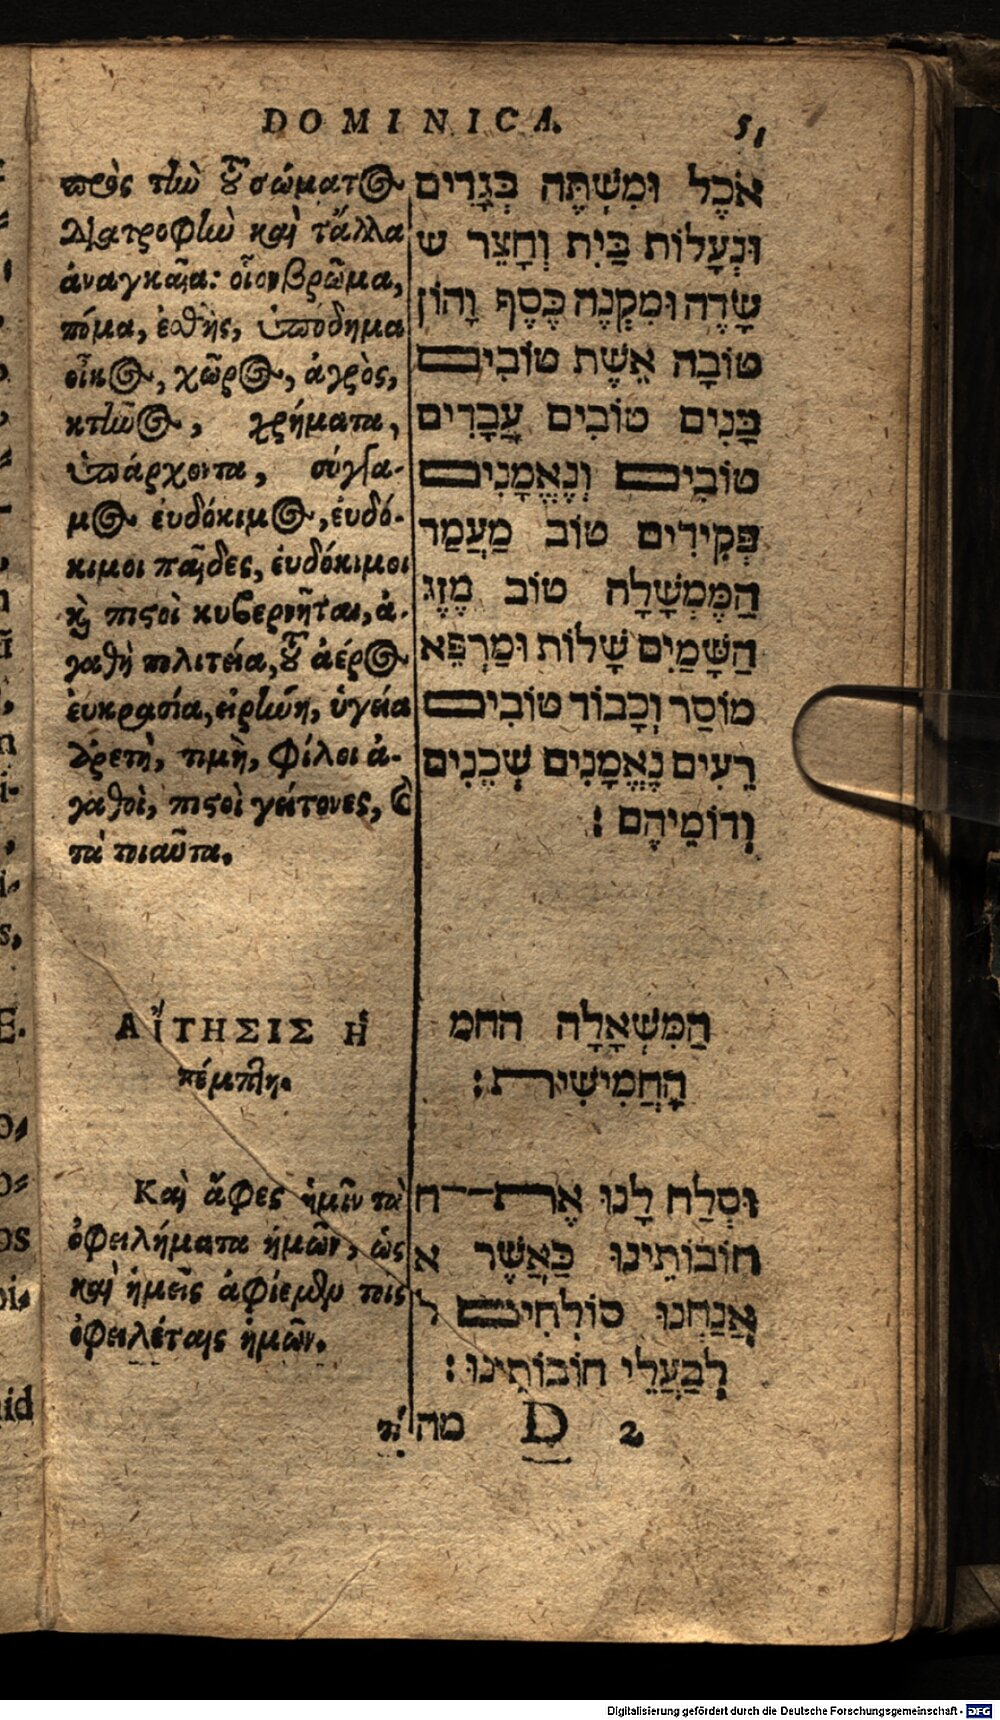 DOMINICA. 51
πρὸς τὴν τοῦ σώματος
διατροφὴν καὶ τἄλλα
ἀναγκαῖα: οἷον βρῶμα,
πόμα, ἐσθὴς, ὑπόδημα
οἶκος, χῶρος, ἀγρὸς,
κτῆνος, χρήματα,
ὑπάρχοντα, σύγγα-
μος ἐυδόκιμος, ἐυδό-
κιμοι παῖδες, ἐυδόκιμοι
καὶ πιστοὶ κυβερνῆται, ἀ-
γαθὴ πολιτεία, τοῦ ἀέρος
ἐυκρασία, εἰρήνη, ὑγεία
ἀρετὴ, τιμὴ, φίλοι ἀ-
γαθοὶ, πιστοὶ γείτονες, καὶ
τὰ τοιαῦτα.
ΑἼΤΗΣΙΣ Ἡ
πέμπτη.
Καὶ ἄφες ἡμῖν τὰ
ὀφειλήματα ἡμῶν, ὡς
καὶ ἡμεῖς ἀφίεμεν τοῖς
ὀφειλέταις ἡμῶν.
τί
אֹכֶל וּמִשְׁתֶּה בְּגָדִים
וּנְעָלוֹת בַּיִת וְחָצֵר ש
שָׂדֶה וּמִקְנֶה כֶּסֶף וָהוֹן
טוֹבָה אֵשֶׁת טוֹבִים
בָּנִים טוֹבִים עֲבָדִים
טוֹבִים וְנֶאֱמָנִים
פְּקִידִים טוֹב מַעֲמַד
הַמֶּמְשָׁלָה טוֹב מֶזֶג
הַשָּׁמַיִם שָׁלוֹת וּמַרְפֵּא
מוּסַר וְכָבוֹד טוֹבִים
רֵעִים נֶאֱמָנִים שְׁכֵנִים
וְדוֹמֵיהֶם :
הַמִּשְׁאָלָה החמ
הָחֲמִישִׁית :
וּסְלַח לָנוּ אֶת ח
חוֹבוֹתֵינוּ כַּאֲשֶׁר א
אֲנַחְנוּ סוֹלְחִים ל
לְבַעֲלֵי חוֹבוֹתֵינוּ :
מה D 2
Digitalisierung gefördert durch die Deutsche Forschungsgemeinschaft - DFG